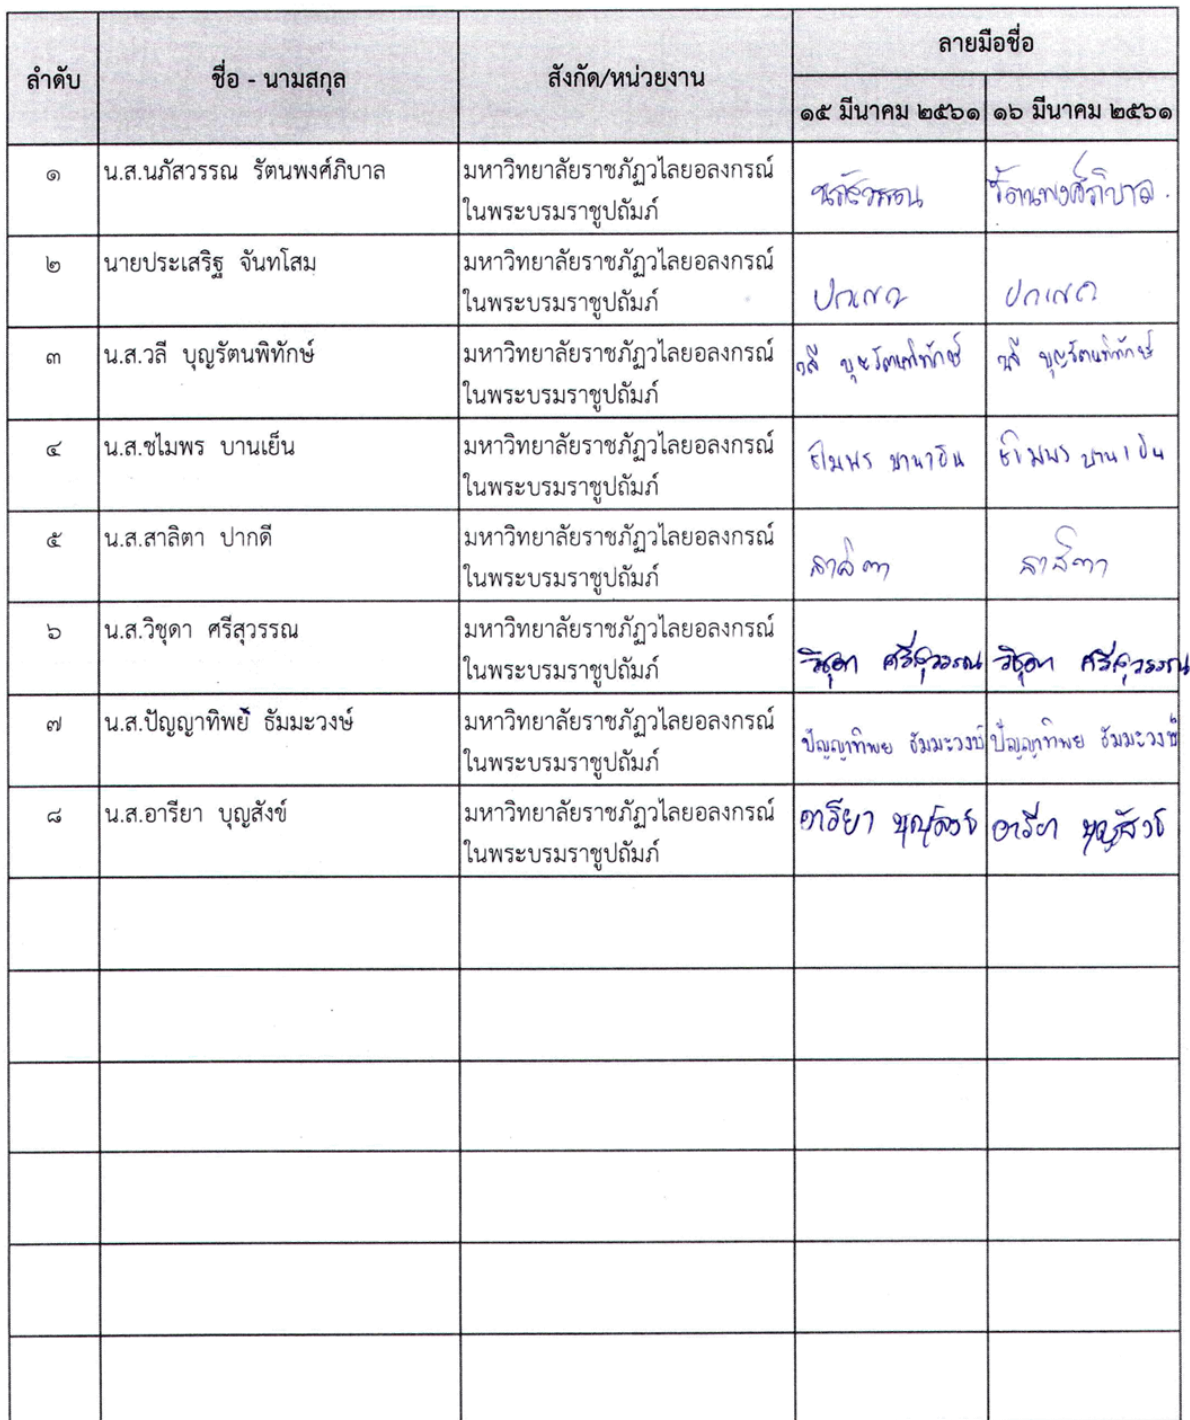 ลำดับ
ชื่อ - นามสกุล
สังกัด/หน่วยงาน
ลายมือชื่อ
๑๕ มีนาคม ๒๕๖๑
๑๖ มีนาคม ๒๕๖๑
๑
น.ส.นภัสวรรณ รัตนพงศ์ภิบาล
มหาวิทยาลัยราชภัฏวไลยอลงกรณ์
ในพระบรมราชูปถัมภ์
นภัสวรรณ
รัตนพงศ์ภิบาล
๒
นายประเสริฐ จันทโสม
มหาวิทยาลัยราชภัฏวไลยอลงกรณ์
ในพระบรมราชูปถัมภ์
๓
น.ส.วลี บุญรัตนพิทักษ์
มหาวิทยาลัยราชภัฏวไลยอลงกรณ์
ในพระบรมราชูปถัมภ์
วลี บุญรัตนพิทักษ์
วลี บุญรัตนพิทักษ์
๔
น.ส.ชไมพร บานเย็น
มหาวิทยาลัยราชภัฏวไลยอลงกรณ์
ในพระบรมราชูปถัมภ์
ชไมพร บานเย็น
ชไมพร บานเย็น
๕
น.ส.สาลิตา ปากดี
มหาวิทยาลัยราชภัฏวไลยอลงกรณ์
ในพระบรมราชูปถัมภ์
สาลิตา
สาลิตา
๖
น.ส.วิชุดา ศรีสุวรรณ
มหาวิทยาลัยราชภัฏวไลยอลงกรณ์
ในพระบรมราชูปถัมภ์
วิชุดา ศรีสุวรรณ
วิชุดา ศรีสุวรรณ
๗
น.ส.ปัญญาทิพย์ ธัมมะวงษ์
มหาวิทยาลัยราชภัฏวไลยอลงกรณ์
ในพระบรมราชูปถัมภ์
ปัญญาทิพย ธัมมะวงษ์
ปัญญาทิพย ธัมมะวงษ์
๘
น.ส.อารียา บุญสังข์
มหาวิทยาลัยราชภัฏวไลยอลงกรณ์
ในพระบรมราชูปถัมภ์
อารียา บุญสังข์
อารียา บุญสังข์